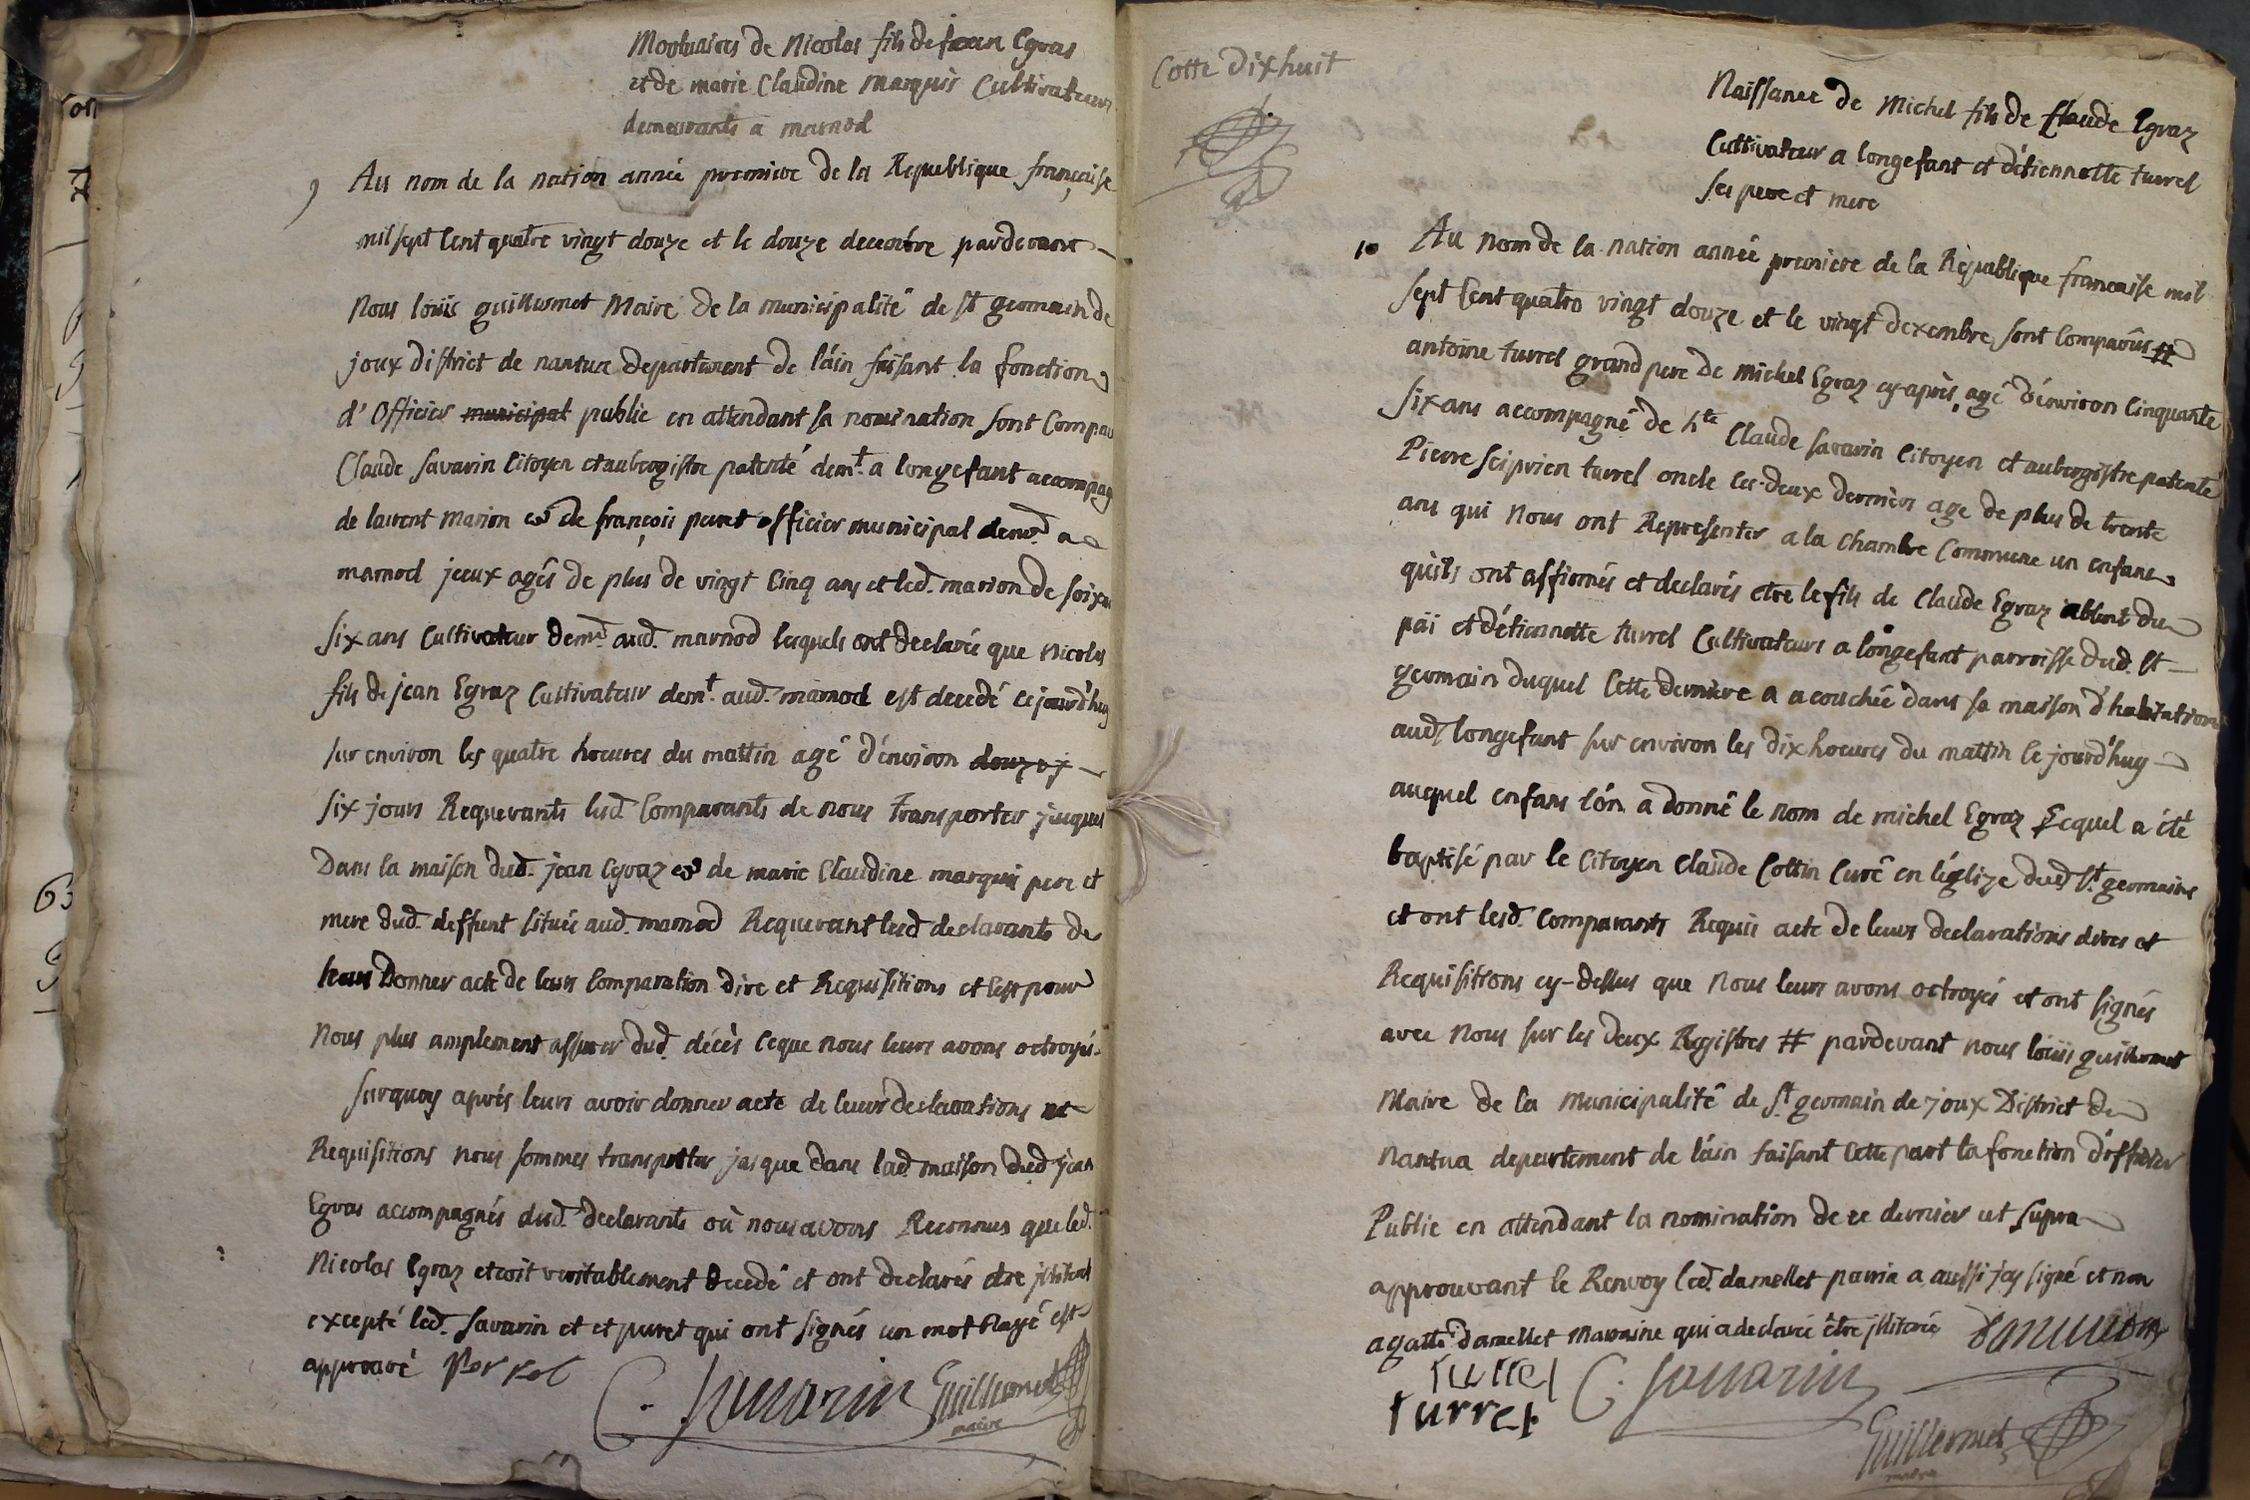 Mortuaires de Nicolas fils de jean Egras
et de marie Claudine marquis Cultivateurs
demeurants a marnod
9 Au nom de la nation année premiere de la Republique française
mil sept Cent quatre vingt douze et le douze decembre pardevant
Nous loüis guillermet Maire de la municipalité de st germain de
joux district de nantua departement de l'áin faisant la fonction
d'Officier municipal public en attendant sa nomination sont Compar
Claude Savarin Citoyen et aubergiste patenté demt. a longefant accompag
de laurent marion et de françois peret officier municipal demt. a
marnod jceux agés de plus de vingt Cinq ans et led. marion de soixan
six ans Cultivateur demt. aud. marnod lesquels ont declaré que Nicolas
fils de jean Egraz Cultivateur demt. aud. marnod est decedé cejourd'huy
sur environ les quatre heures du mattin agé d'environ douze j
six jours Requerants lesd. Comparants de nous transporter jusques
Dans la maison dud. jean Egraz et de marie Claudine marquis pere et
mere dud. deffunt située aud. marnod Requerant lesd. declarants de
leurs Donner acte de leurs Comparation dire et Requisitions et c'est pour
Nous plus amplement assurer dud. décès Ceque nous leurs avons octroyés
Surquoy aprés leurs avoir donner acte de leurs declarations et
Requisitions nous sommes transporter jusque dans lad. maison dud. jean
Egras accompagnés dud. declarants où nous avons Reconnus que led.
Nicolas Egraz etoit veritablement decedé et ont declarés etre jlliterés
excepté led. Savarin et et puret qui ont signés un mot Rayé est
approuvé Perret
C. Savarin Guillermet
maire
Cotte dixhuit
Naissance de Michel fils de Claude Egraz
Cultivateur a longefant et d'étiennette turrel
ses pere et mere
10 Au nom de la nation année premiere de la République francaise mil
sept Cent quatre vingt douze et le vingt dexembre, sont Comparûs #
antoine turrel grand pere de michel Egraz cy-après, agé d'environ Cinquante
six ans accompagné de hte Claude savarin Citoyen et aubergistre patenté
Pierre Sciprien turrel oncle les deux derniers age de plus de trente
ans qui Nous ont Representer a la Chambre Commune un enfans
quils ont affirmés et declarés etre le fils de Claude Egraz absent du
päi et d'étiennette turrel Cultivateurs a longefant parroisse dud. St
germain duquel Cette derniere a acouchée dans sa maison d'habitation
aud. longefant sur environ les dix heures du mattin Ce jourd'huy
auquel enfans l'ón a donné le nom de michel Egraz Lequel a été
baptisé par le Citoyen Claude Cottin Curé en l'églize dud. St. germains
et ont lesd. Comparants Requis acte de leurs declarations dires et
Requisitions cy-dessus que Nous leurs avons octroyés et ont signés
avec Nous sur les deux Registres # pardevant nous loüis guillermet
Maire de la municipalité de St germain de joux District de
Nantua departement de l'áin faisant Cette part la fonction d'officier
Public en attendant la nomination de ce dernier ut supra
approuvant le Renvoy led. damellet parrin a aussi jcy signé et non
agatte damellet maraine qui a declarée être jlliterée
turrel
turrel C. Savarin
Guillermet
maire